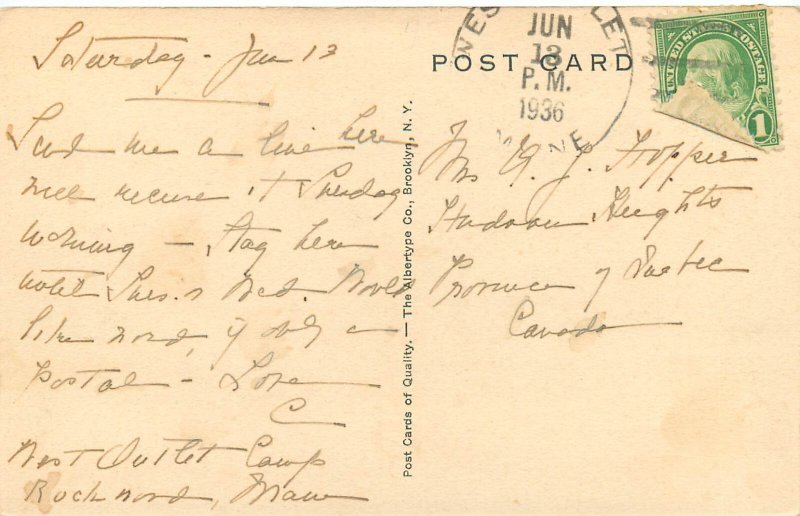 Saturday - Jun 13
Send me a line here
will receive it Tuesday
morning - Stay here
until Tues. or Wed. Would
like word, if only a
postal - Love
C
West Outlet Camp
Rockwood, Maine
Post Cards of Quality. — The Albertype Co., Brooklyn, N. Y.
POST CARD
WEST OUTLET
JUN
13
P.M.
1936
MAINE
UNITED STATES POSTAGE
1
Mrs G. J. Hopper
Hudson Heights
Province of Quebec
Canada